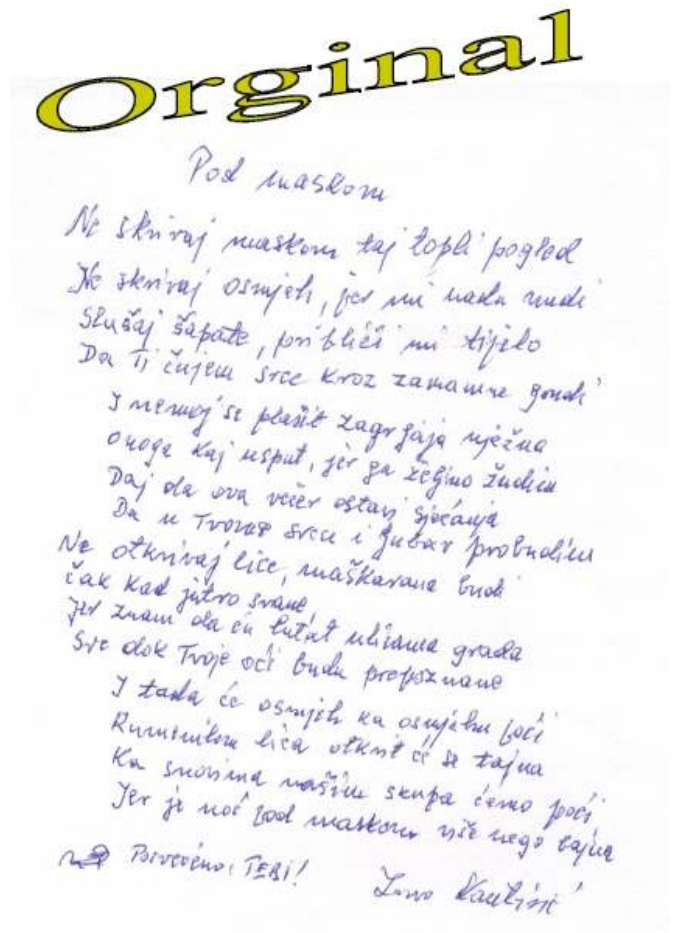 Orginal
Pod maskom
Ne skrivaj maskom taj topli pogled
Ne skrivaj osmjeh, jer mi nadu nudi
Slušaj šapate, približi mi tijelo
Da Ti čujem srce kroz zamamne grudi
I nemoj se plašit zagrljaja nježna
onoga kaj usput, jer ga željno žudim
Daj da ova večer ostavi sjećanja
Da u Tvome srcu i ljubav probudim
Ne otkrivaj lice, maškarana budi
čak kad jutro svane,
Jer znam da ću lutat ulicama grada
Sve dok Tvoje oči budu prepoznane
I tada će osmjeh ka osmjehu poći
Rumenilom lica otkrit će se tajna
Ka snovima našim skupa ćemo poći
Jer je noć pod maskom više nego bajna
Posvećeno: TEBI!